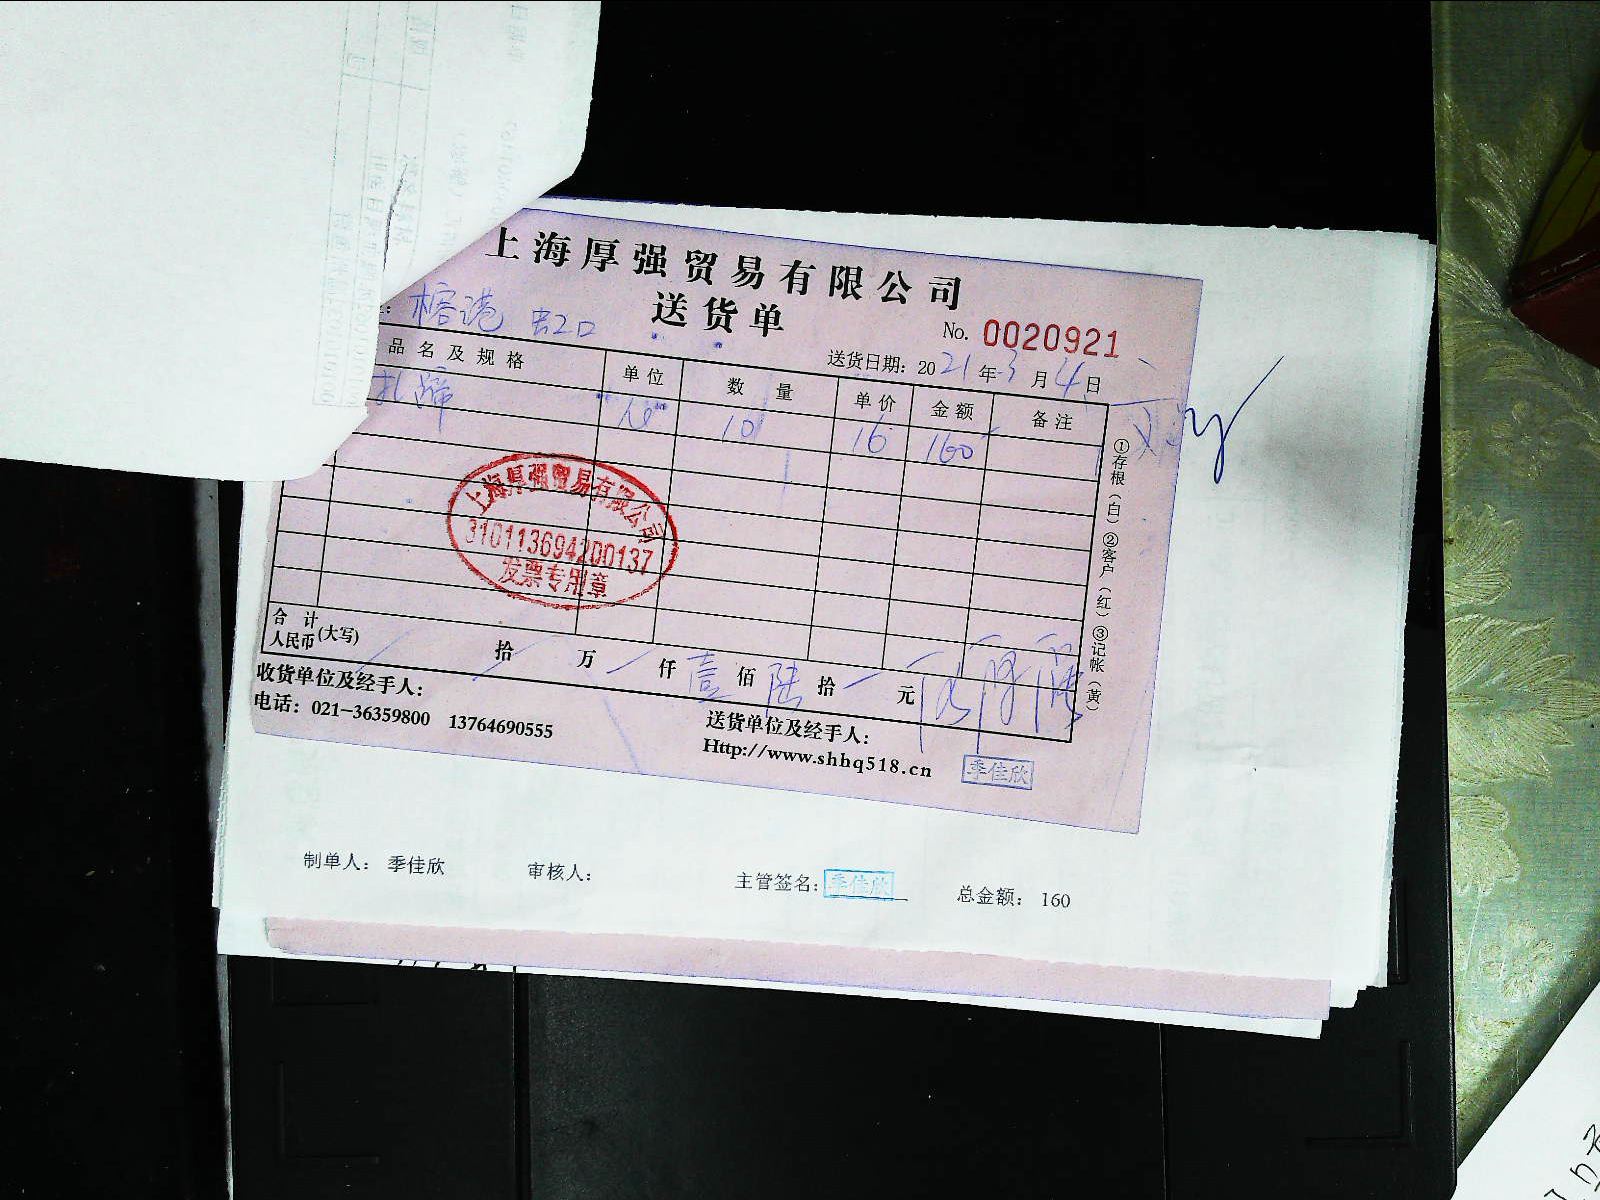 上海厚强贸易有限公司
送货单
No. 0020921
榕港 虹口
送货日期: 2021年3月4日
品名及规格 单位 数量 单价 金额 备注
扎蹄 10 16 160
上海厚强贸易有限公司
310113694200137
发票专用章
①存根(白)②客户(红)③记帐(黄)
合计
人民币(大写) 拾 万 仟 壹 佰 陆 拾 元
收货单位及经手人:
电话: 021-36359800 13764690555
送货单位及经手人:
Http://www.shhq518.cn
季佳欣
制单人: 季佳欣 审核人: 主管签名: 季佳欣 总金额: 160